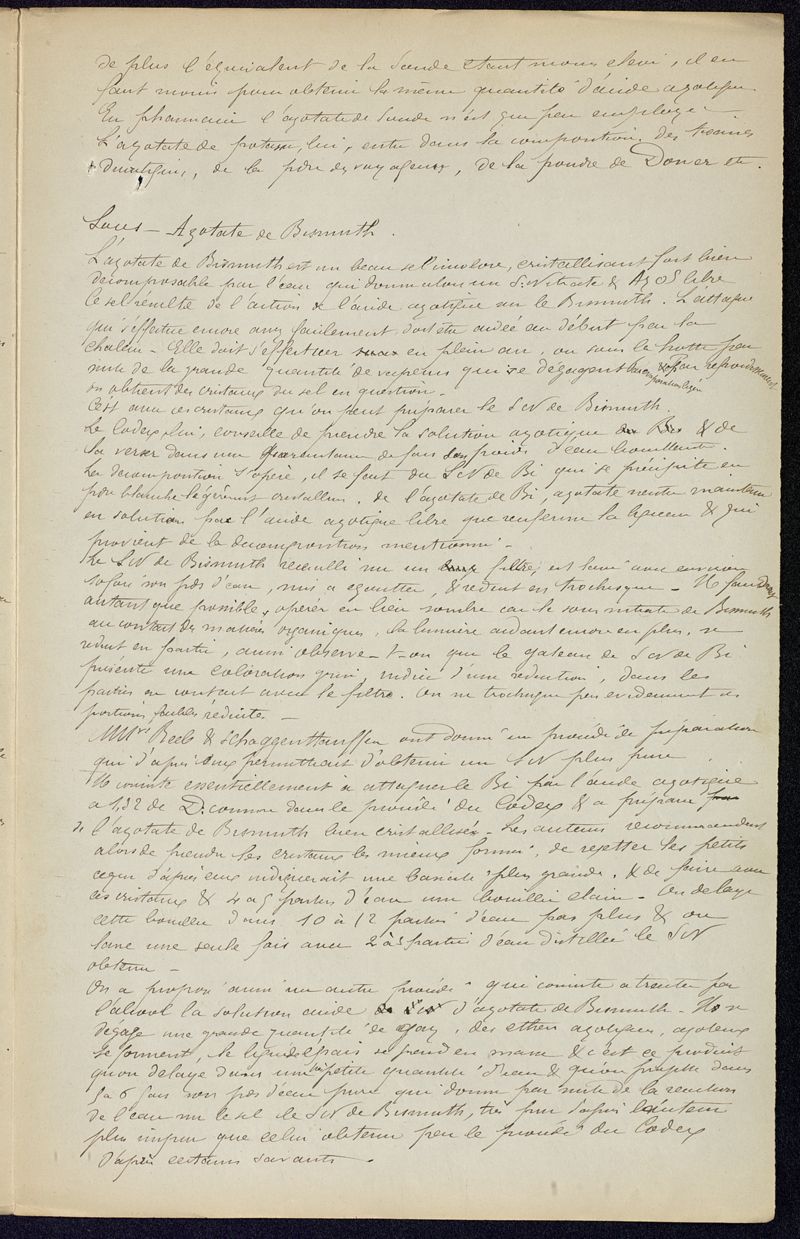 de plus l'équivalent de la soude étant moins élevé, il en
faut moins pour obtenir la même quantité d'acide azotique
En pharmacie l'azotate de soude n'est que peu employé.
L'azotate de potasse, lui, entre dans la composition des tisanes
diurétiques, de la pdre des voyageurs, de la poudre de Dower etc.
Sous-Azotate de Bismuth.
L'azotate de Bismuth est un beau sel incolore, cristallisant fort bien
décomposable par l'eau qui donne alors un S. Nitrate & AzO5 libre
Ce sel résulte de l'action de l'acide azotique sur le Bismuth. L'attaque
qui s'effectue encore assez facilement doit être aidée au début par la
chaleur - Elle doit s'effectuer en plein air, ou sous la hotte par
suite de la grande quantité de vapeurs qui se dégagent par refroidissement
évaporation légère
on obtient des cristaux du sel en question.
C'est avec ces cristaux qu'on peut préparer le S.N de Bismuth.
Le Codex, lui, conseille de prendre la solution azotique & de
la verser dans une quarantaine de fois son poids d'eau bouillante.
La décomposition s'opère, il se fait du S.N de Bi qui se précipite en
pdre blanche légèrement cristalline, de l'azotate de Bi, azotate neutre maintenu
en solution par l'acide azotique libre que renferme la liqueur & qui
provient de la décomposition mentionné.
Le S.N de Bismuth recueilli sur un filtre, est lavé avec environ
fois son pds d'eau, mis à égoutter, & réduit en trochisques - Il faudra
autant que possible, opérer en lieu sombre car le sous nitrate de Bismuth
au contact des matières organiques, la lumière aidant encore en plus, se
réduit en partie, aussi observe-t-on que le gâteau de S.N de Bi
présente une coloration grise, indice d'une réduction, dans les
parties en contact avec le filtre. On ne trochisque pas évidemment ces
portions faibles réduites -
MMrs Reels & ont donné un procédé de préparation
qui d'après eux permettrait d'obtenir un S.N plus pur.
Il consiste essentiellement à attaquer le Bi par l'acide azotique
à 1,32 de D. comme dans le procédé du Codex & à préparer
de l'azotate de Bismuth bien cristallisé - Les auteurs recommandent
alors de prendre les cristaux les mieux formés, de rejeter les petits
ce qui d'après eux indiquerait une basicité plus grande, & de faire avec
ces cristaux & 4 à 5 parties d'eau une bouillie claire - On délaye
cette bouillie dans 10 à 12 parties d'eau pas plus & on
lave une seule fois avec 2 à 3 parties d'eau distillée le S.N
obtenu -
On a proposé aussi un autre procédé qui consiste à traiter par
l'alcool la solution acide d'azotate de Bismuth - Il se
dégage une grande quantité de gaz, des éthers azotiques, azoteux
se forment, le liquide épais se prend en masse & c'est ce produit
qu'on délaye dans une très petite quantité d'eau & qu'on projette dans
5 à 6 fois son pds d'eau pure qui donne par suite de la réaction
de l'eau sur le sel le S.N de Bismuth, très pur d'après l'auteur
plus impur que celui obtenu par le procédé du Codex
d'après certains savants.